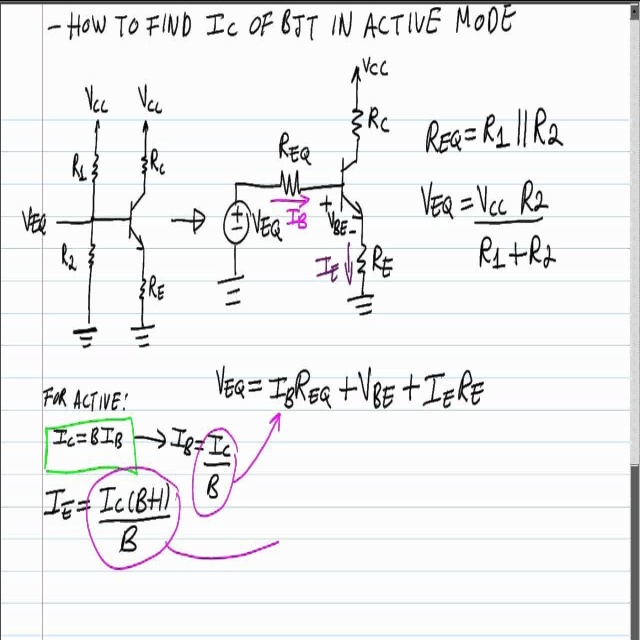 - HOW TO FIND IC OF BJT IN ACTIVE MODE
VCC VCC
R1 RC
VEQ
R2
RE
VCC
RC
REQ
VEQ
IB
+
VBE-
IE
RE
REQ = R1 || R2
VEQ = VCC R2
R1+R2
VEQ = IBREQ + VBE + IERE
FOR ACTIVE:
IC=BIB → IB = IC
B
IE = IC(B+1)
B